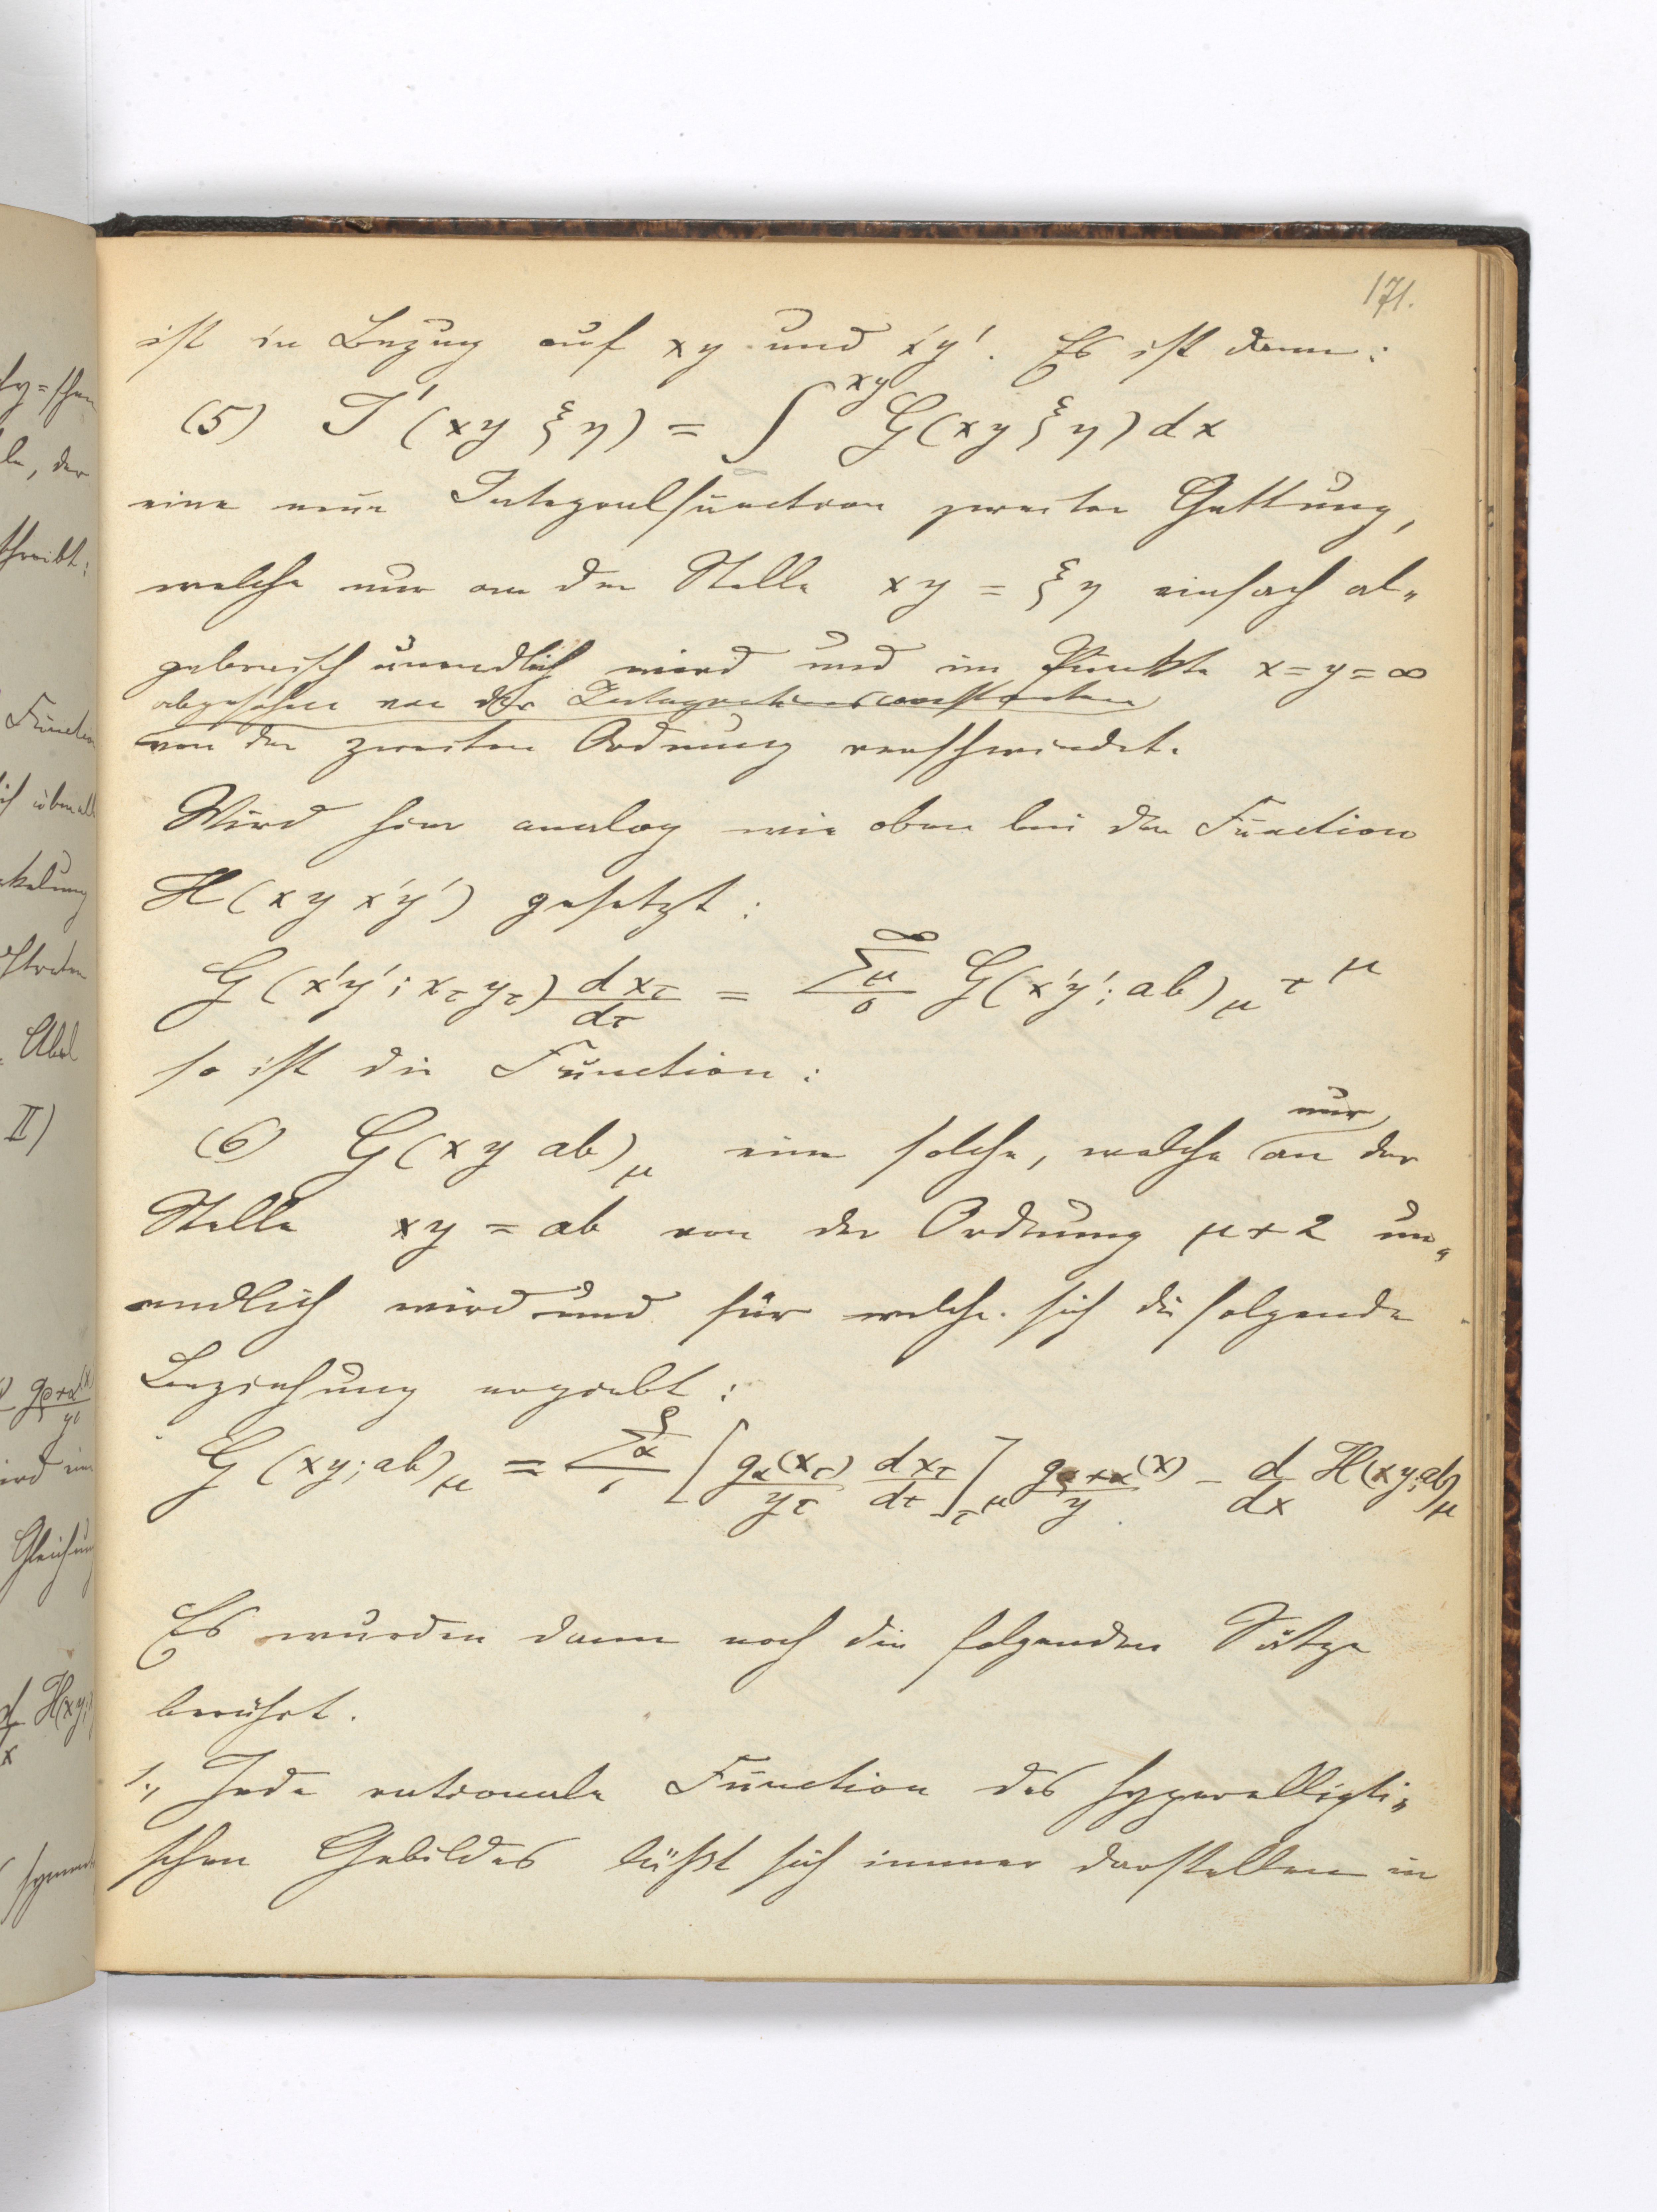 171.
ist in Bezug auf xy und x'y'. Es ist dann:
(5) J'(xy ξη) = ∫^{xy} G(xy ξη) dx
eine neue Integralfunction zweiter Gattung,
welche nur an der Stelle xy = ξη einfach al„
gebraisch unendlich wird und im Punkte x=y=∞
abgesehen von der Integrationsconstanten
von der zweiten Ordnung verschwindet.
Wird hier analog wie oben bei der Function
H(xy x'y') gesetzt:
G(x'y'; x_τ y_τ) dx_τ/dτ = Σ_μ^∞_0 G(x'y'; ab)_μ τ^μ
so ist die Function:
(6) G(xy ab)_μ eine solche, welche nur an der
Stelle xy = ab von der Ordnung μ+2 un„
endlich wird und für welche sich die folgende
Beziehung ergiebt:
G(xy; ab)_μ = Σ_α^ρ_1 [g_α(x_τ)/y_τ dx_τ/dτ]_{τ^μ} g_{ρ+α}(x)/y − d/dx H(xy; ab)_μ
Es wurden dann noch die folgenden Sätze
berührt.
1., Jede rationale Function des hyperellipti„
schen Gebildes läßt sich immer darstellen in